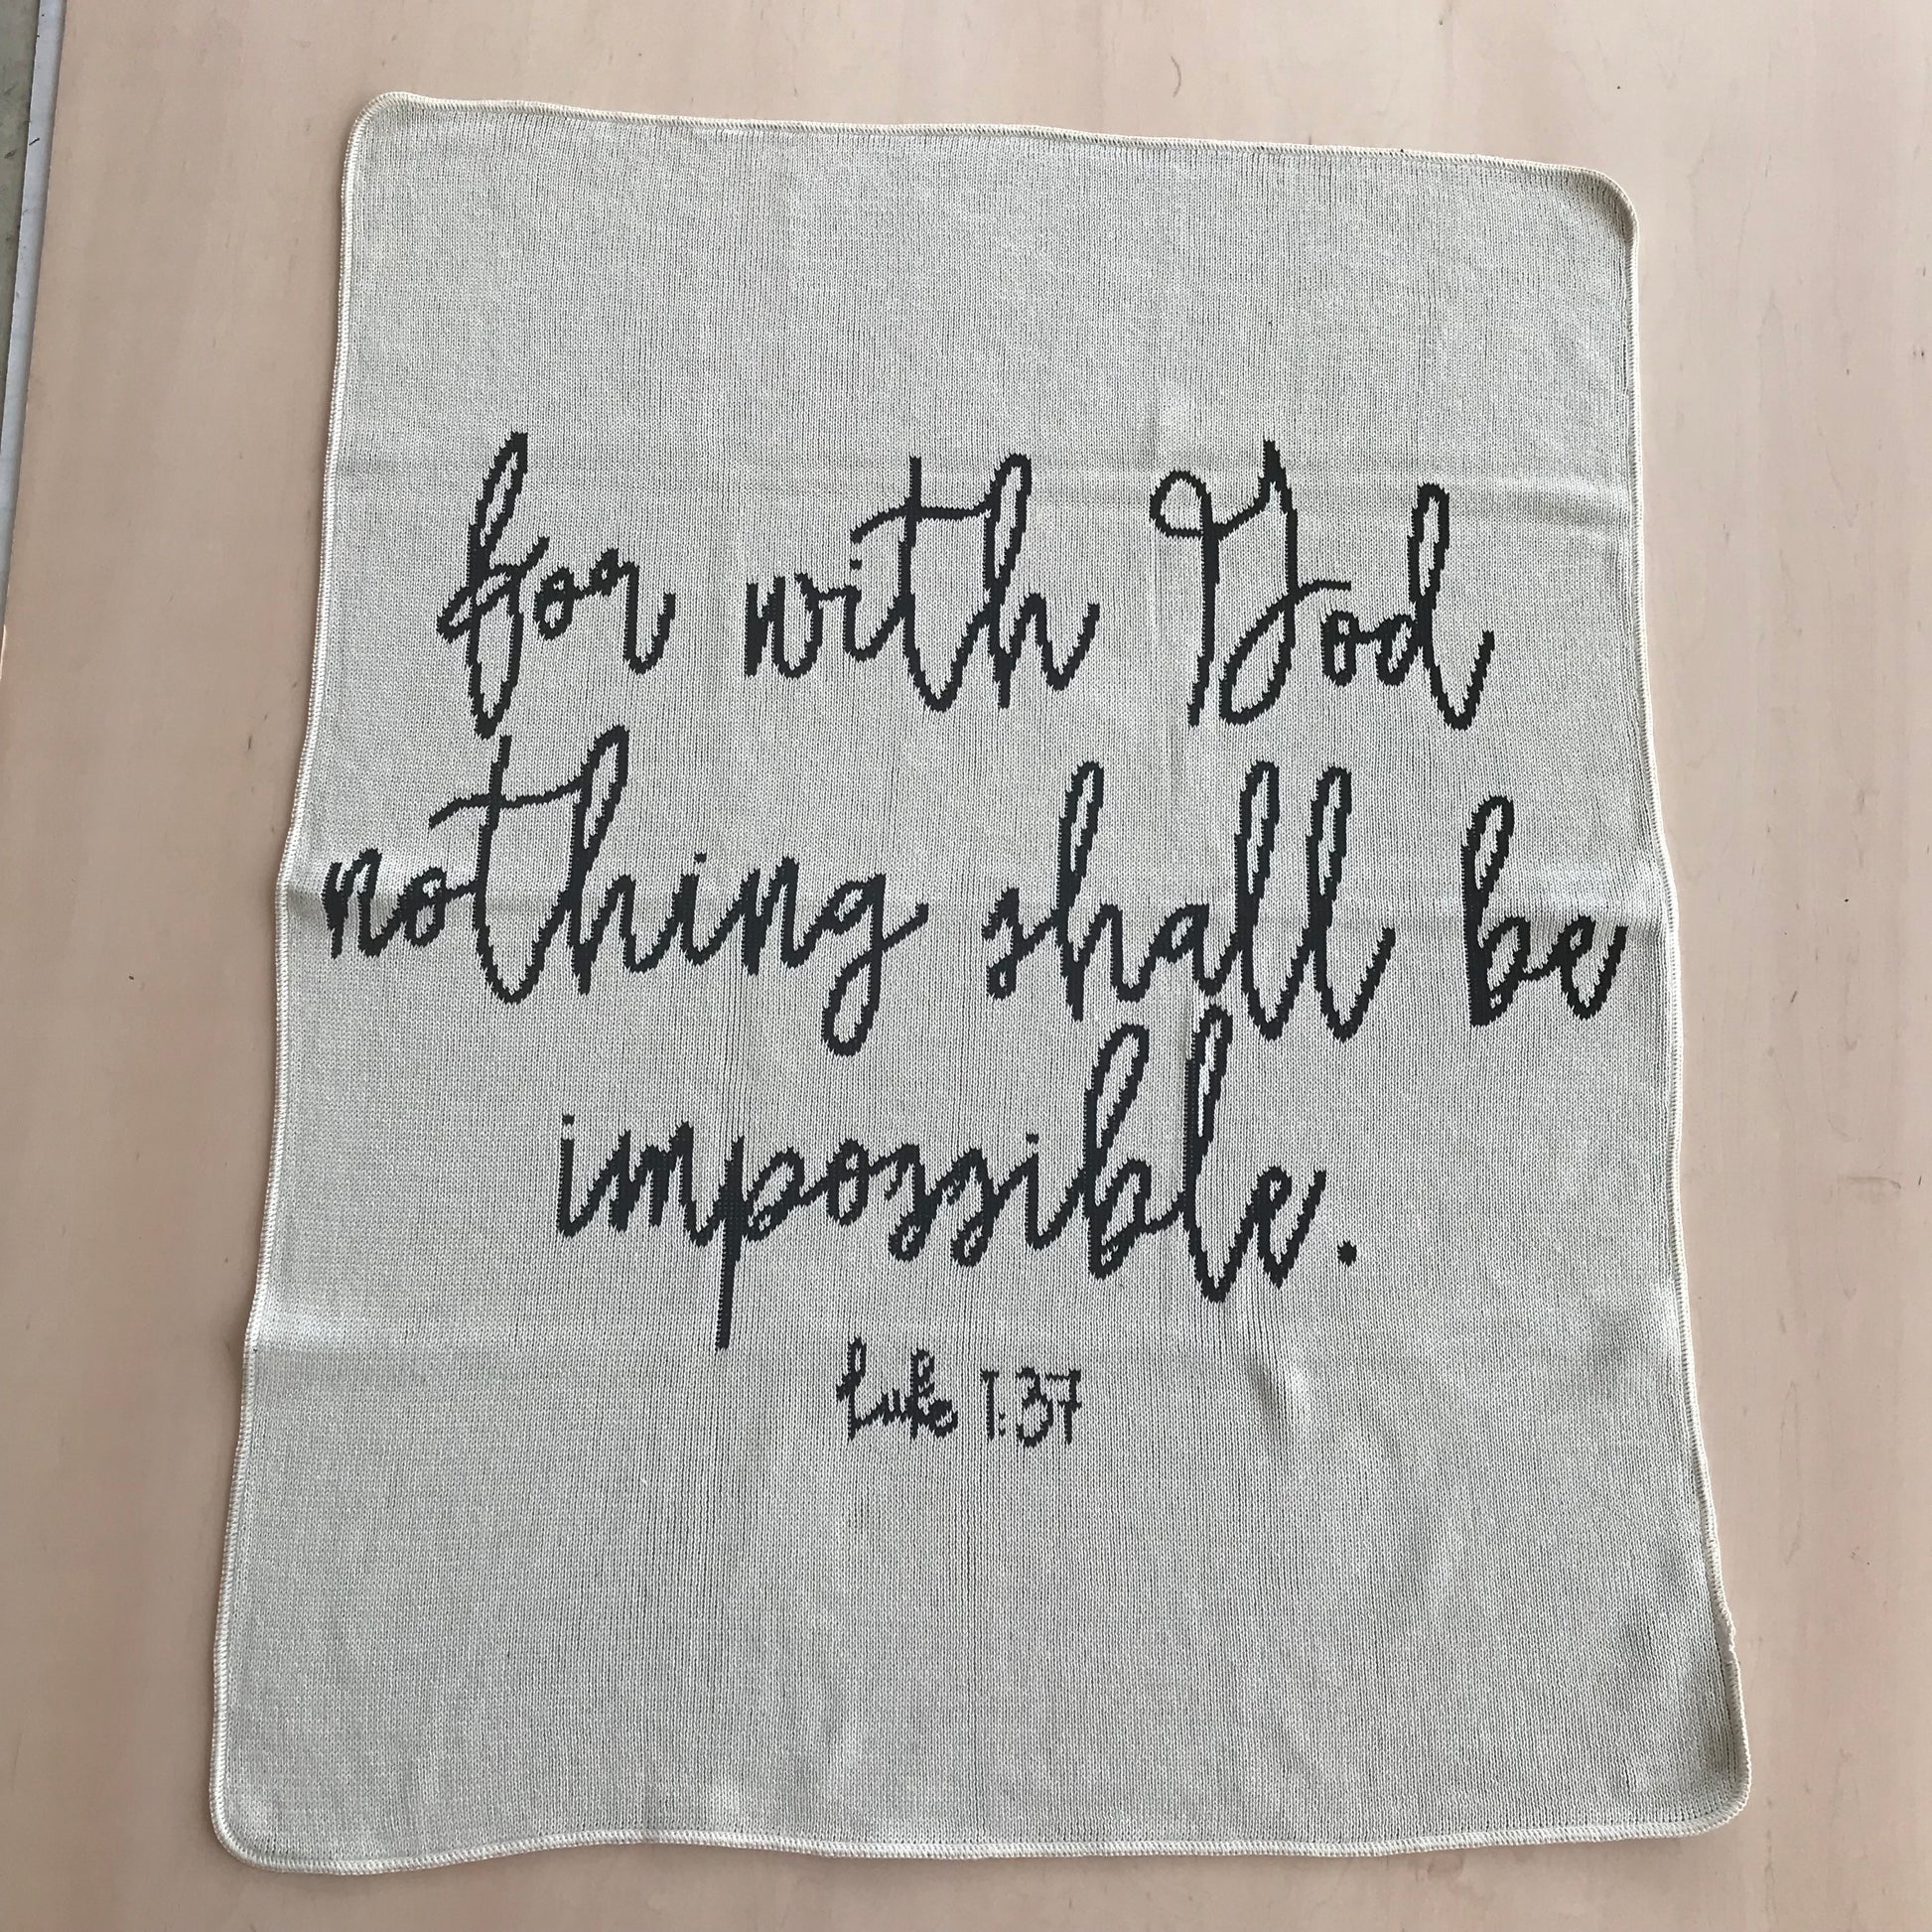 for with God
nothing shall be
impossible.
Luke 1:37